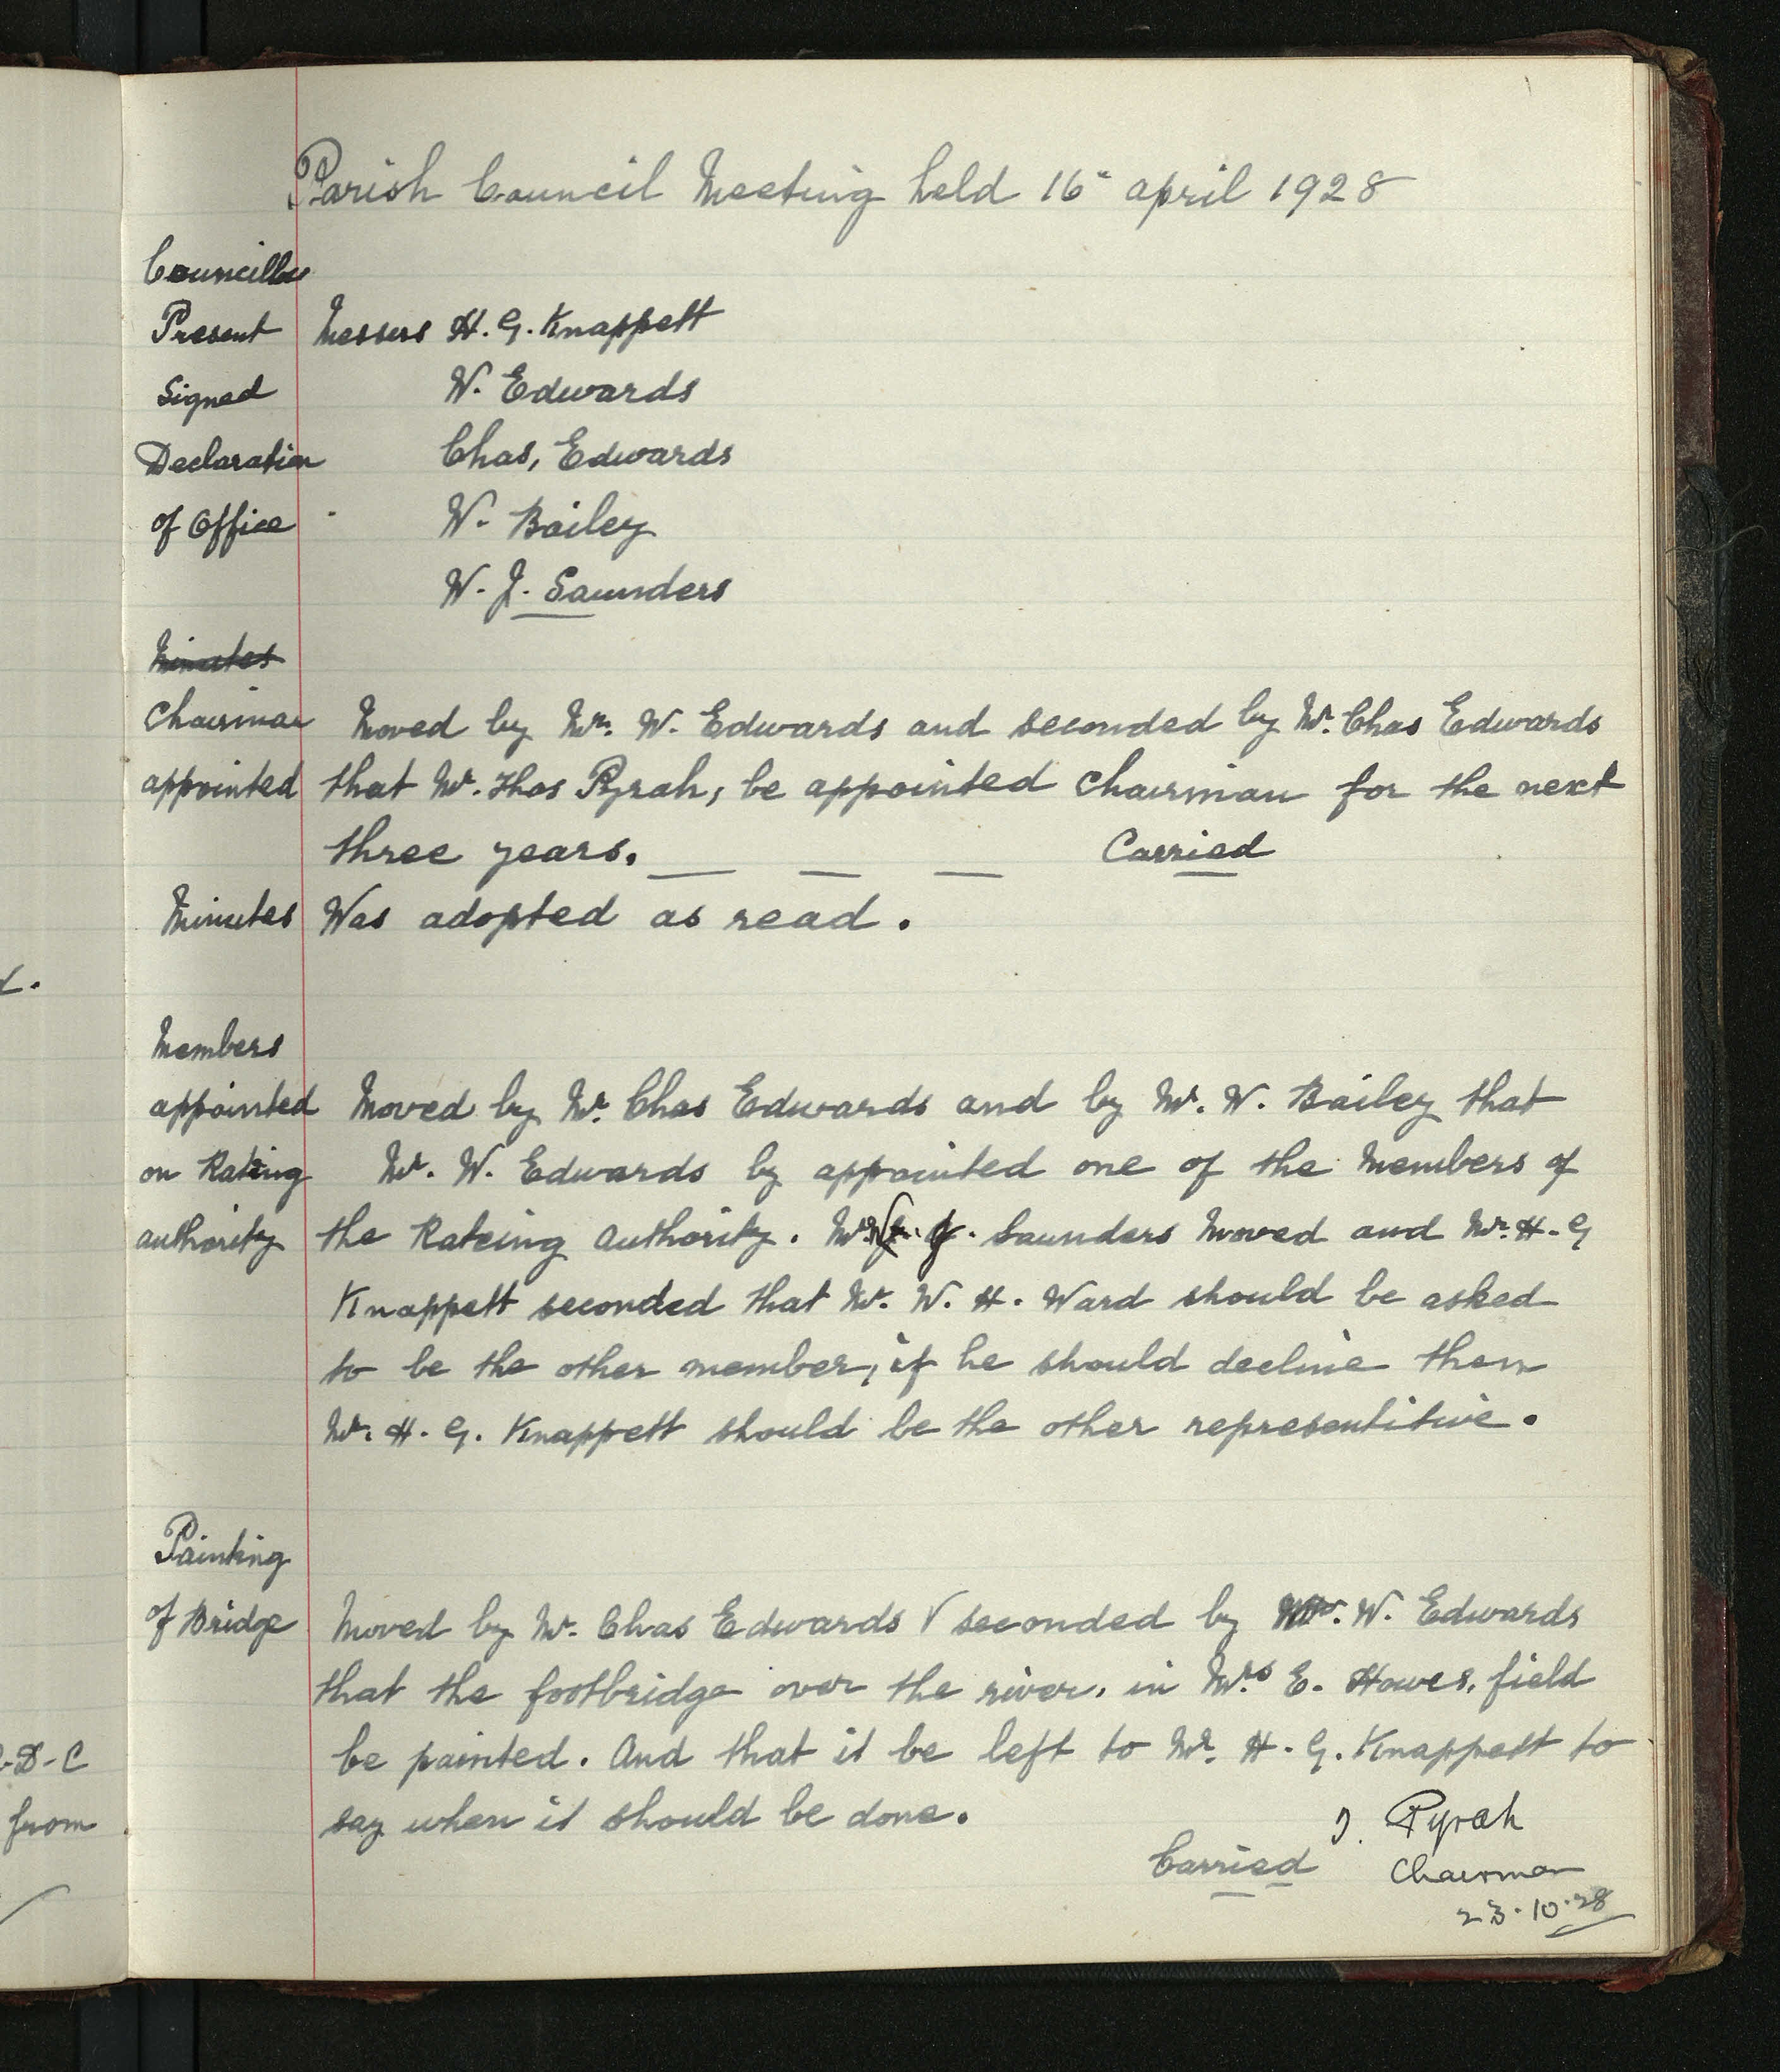 Parish Council Meeting held 16" april 1928
Councillors
Present Messers H. G. Knappett
Signed W. Edwards
Declaration Chas, Edwards
of Office W. Bailey
W. J. Saunders
Minutes
Chairman Moved by Mr. W. Edwards and seconded by Mr. Chas Edwards
appointed that Mr. Thos Pyrah, be appointed Chairman for the next
three years. Carried
Minutes Was adopted as read.
Members
appointed Moved by Mr. Chas Edwards and by Mr. W. Bailey that
on Rateing Mr. W. Edwards by appointed one of the Members of
authority the Rateing Authority. Mr W. J. Saunders Moved and Mr. H. G
Knappett seconded that Mr. W. H. Ward should be asked
to be the other member, if he should decline then
Mr. H. G. Knappett should be the other representitive.
Painting
of Bridge Moved by Mr. Chas Edwards & seconded by Mr. W. Edwards
that the footbridge over the river, in Mrs E. Howes, field
be painted. And that it be left to Mr. H. G. Knappett to
say when it should be done.
T. Pyrah
Carried Chairman
23.10.28
L.
-D-C
from